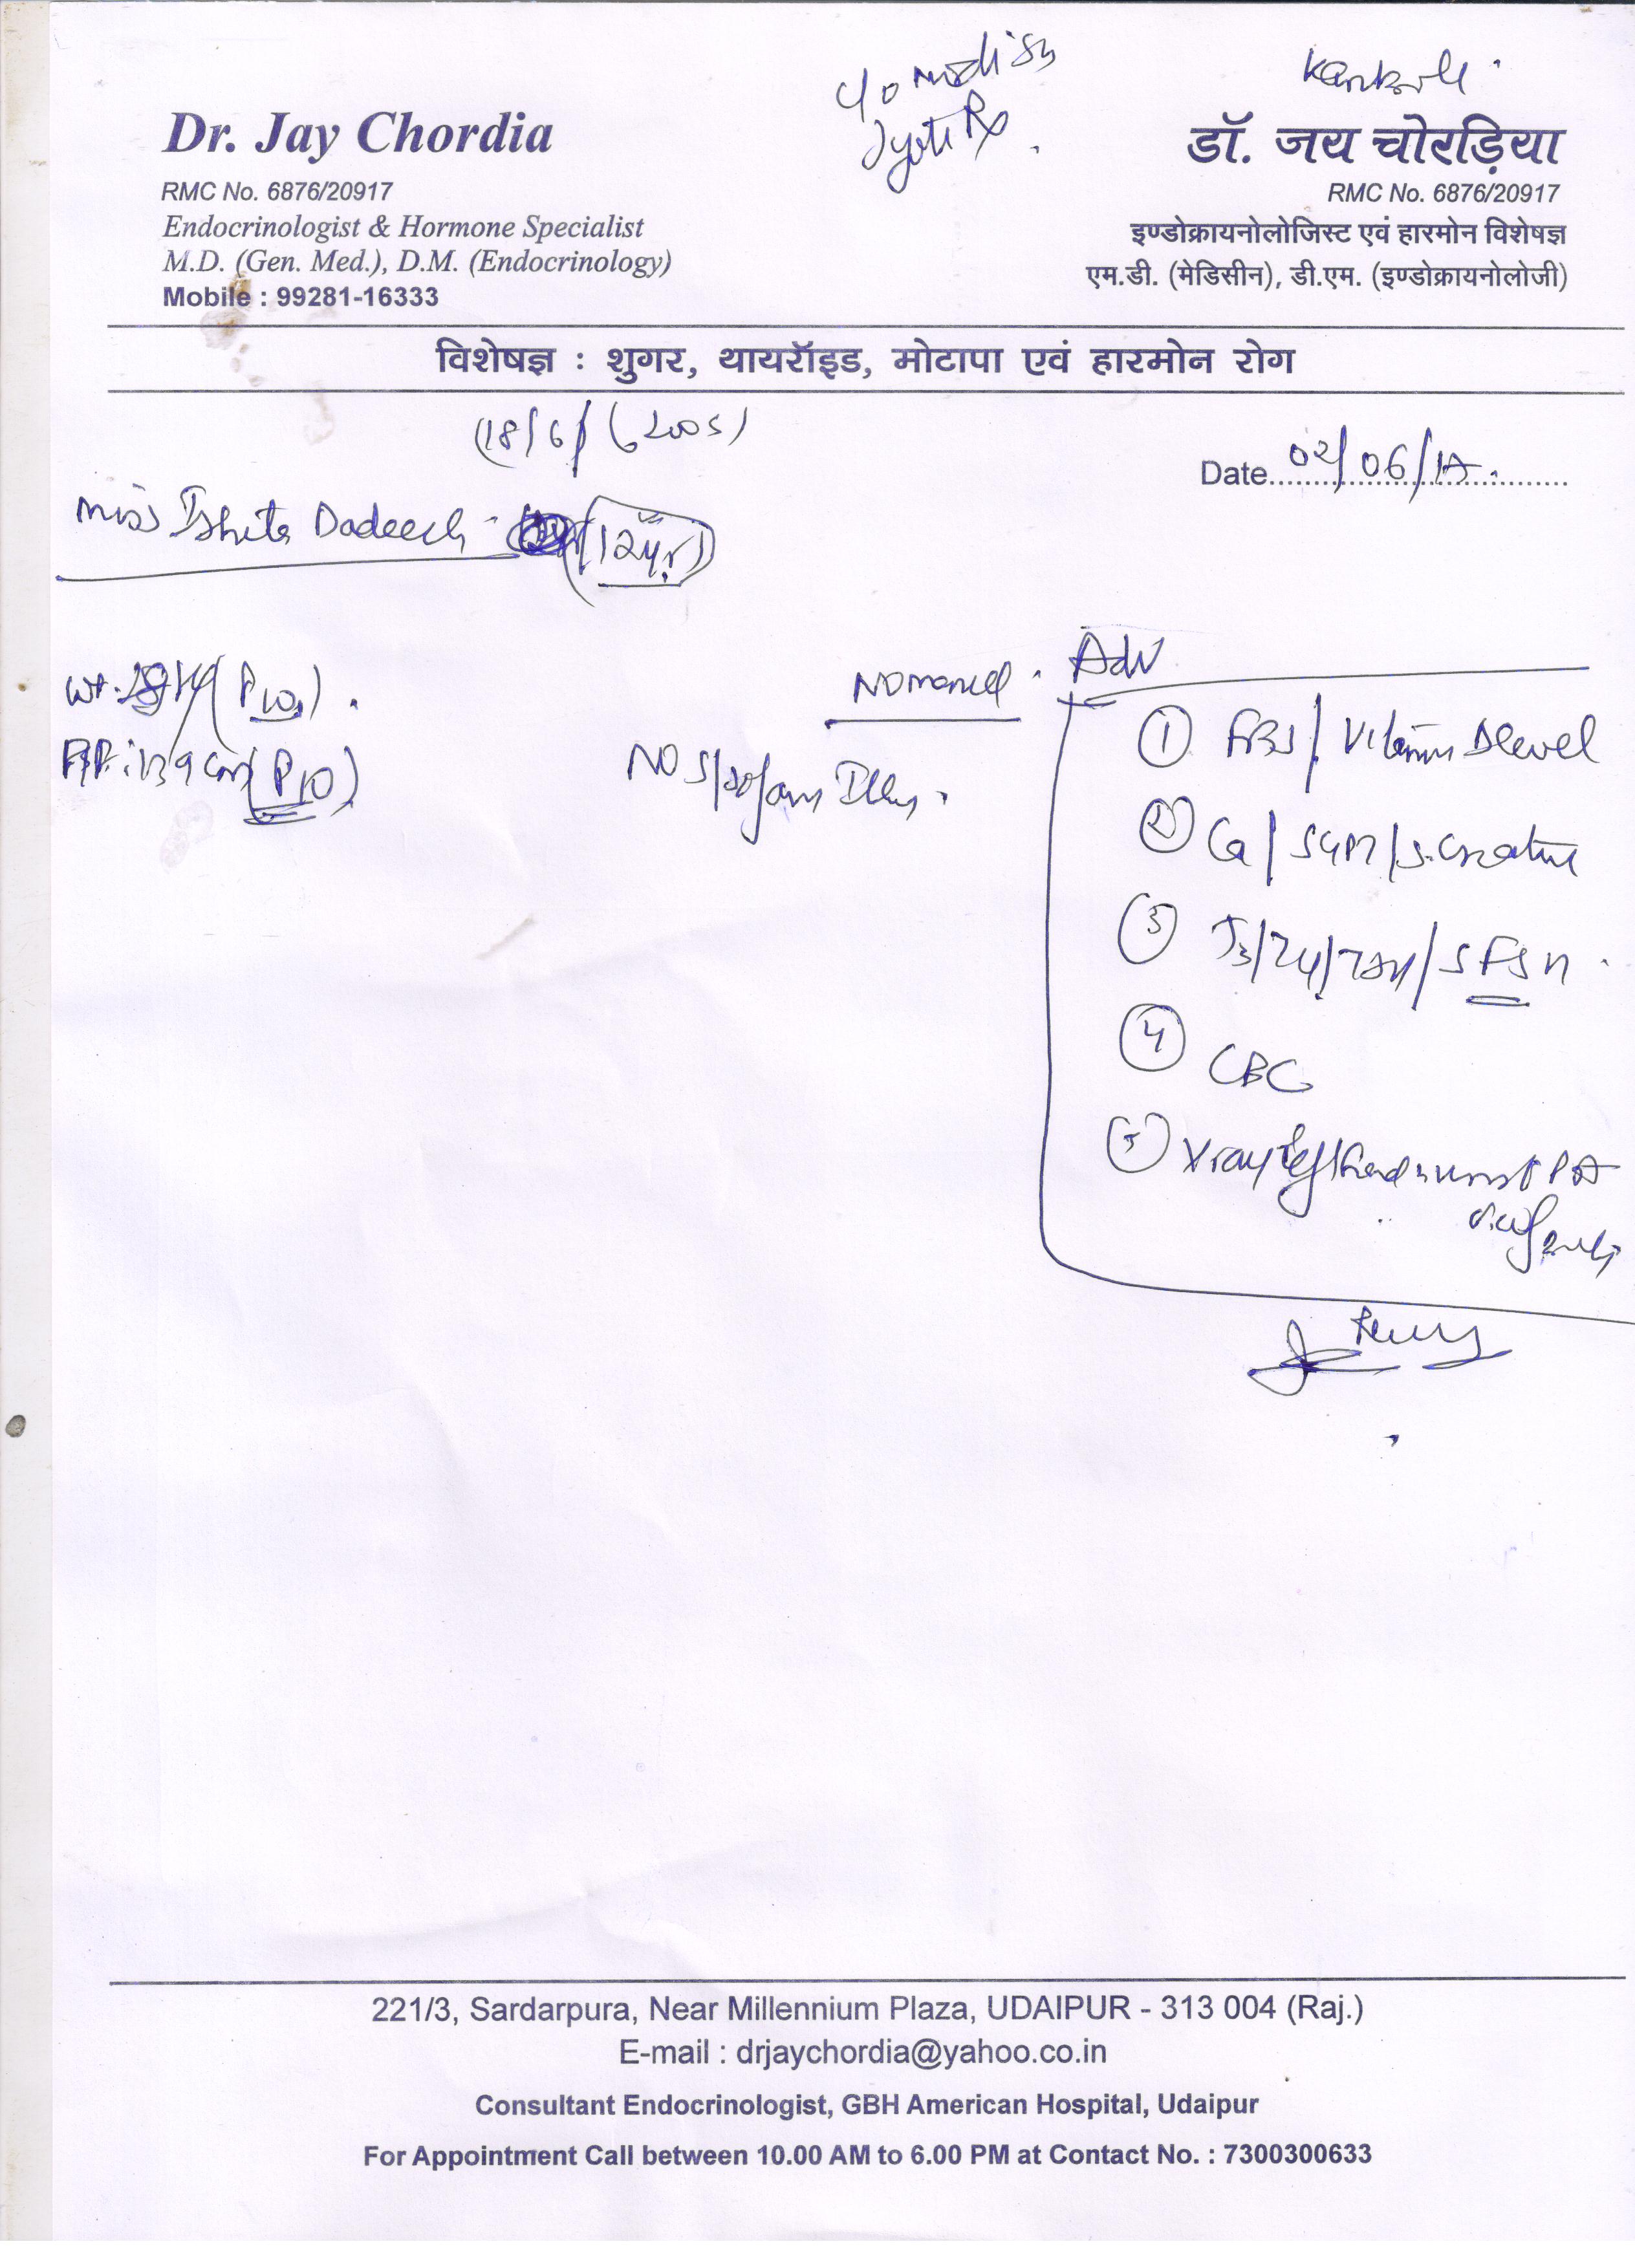 Kankroli
Dr. Jay Chordia
RMC No. 6876/20917
Endocrinologist & Hormone Specialist
M.D. (Gen. Med.), D.M. (Endocrinology)
Mobile : 99281-16333
Jyoti
डॉ. जय चोरड़िया
RMC No. 6876/20917
इण्डोक्रायनोलोजिस्ट एवं हारमोन विशेषज्ञ
एम.डी. (मेडिसीन), डी.एम. (इण्डोक्रायनोलोजी)
विशेषज्ञ : शुगर, थायरॉइड, मोटापा एवं हारमोन रोग
(18/6/ (2005)
Date 02/06/17.
Miss Ishita Dadeech - (12yr)
Wt. (P10) .
139 cm (P10)
NO
NO
Adv
① FBS / Vitamin D level
② Ca / SGPT / S. Creatine
③ T3/T4/TSH/S FSH .
④ CBC
⑤ Xray left hand & wrist PA
221/3, Sardarpura, Near Millennium Plaza, UDAIPUR - 313 004 (Raj.)
E-mail : drjaychordia@yahoo.co.in
Consultant Endocrinologist, GBH American Hospital, Udaipur
For Appointment Call between 10.00 AM to 6.00 PM at Contact No. : 7300300633